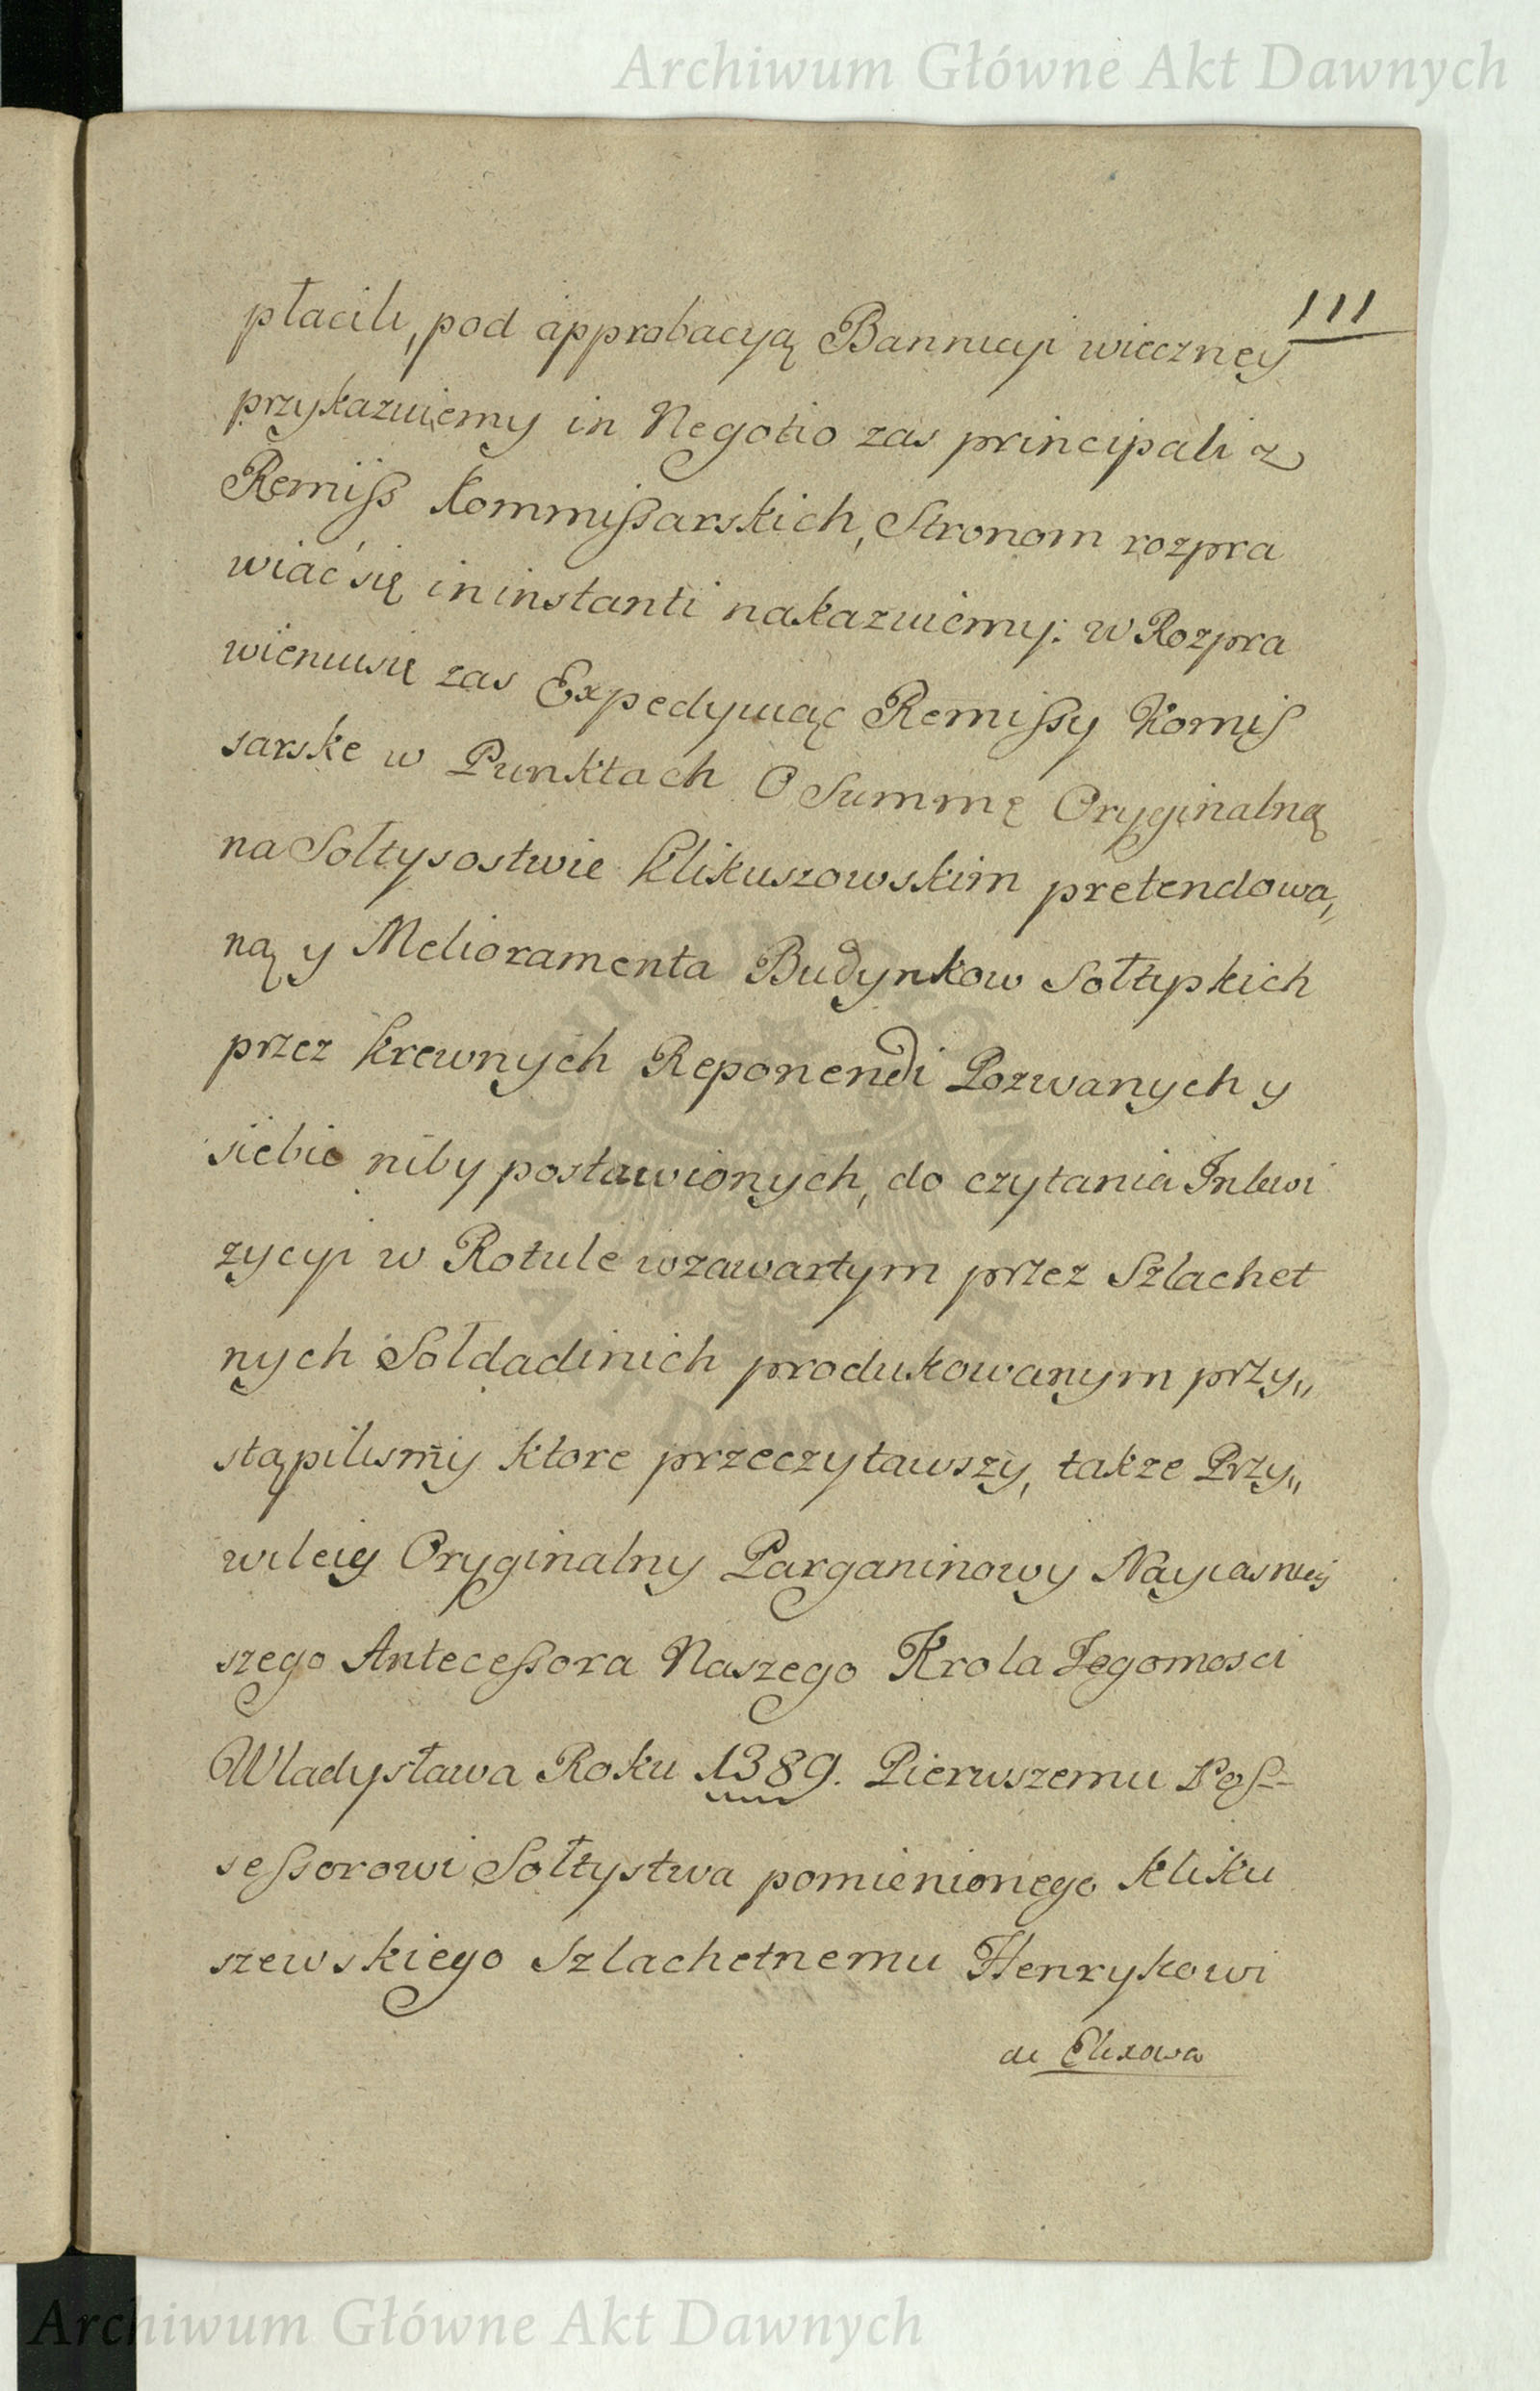 Archiwum Główne Akt Dawnych
111
płacili, pod approbacyą Bannicyi wieczney
przykazuiemy in Negotio zas principali z
Remiss Kommissarskich, Stronom rozpra
wiać się in instanti nakazuiemy: w Rozpra
wieniusię zas Expedyiuiąc Remissy Komis
sarske w Punktach O Summę Oryginalną
na Sołtysostwie Klikuszowskim pretendowa,,
ną y Melioramenta Budynkow Sołtyskich
przez krewnych Reponendi Pozwanych y
siebie niby postawionych, do czytania Inkwi
zycyi w Rotule wzawartym przez Szlachet
nych Sołdadinich produkowanym przy,,
stąpilismy ktore przeczytawszy, takze Przy,,
wileiy Oryginalny Parganinowy Nayiasniey
szego Antecessora Naszego Krola Jegomosci
Władysława Roku 1389. Pierwszemu Pos-
sessorowi Sołtystwa pomienionego Kliku
szewskiego Szlachetnemu Henrykowi
de
Archiwum Główne Akt Dawnych